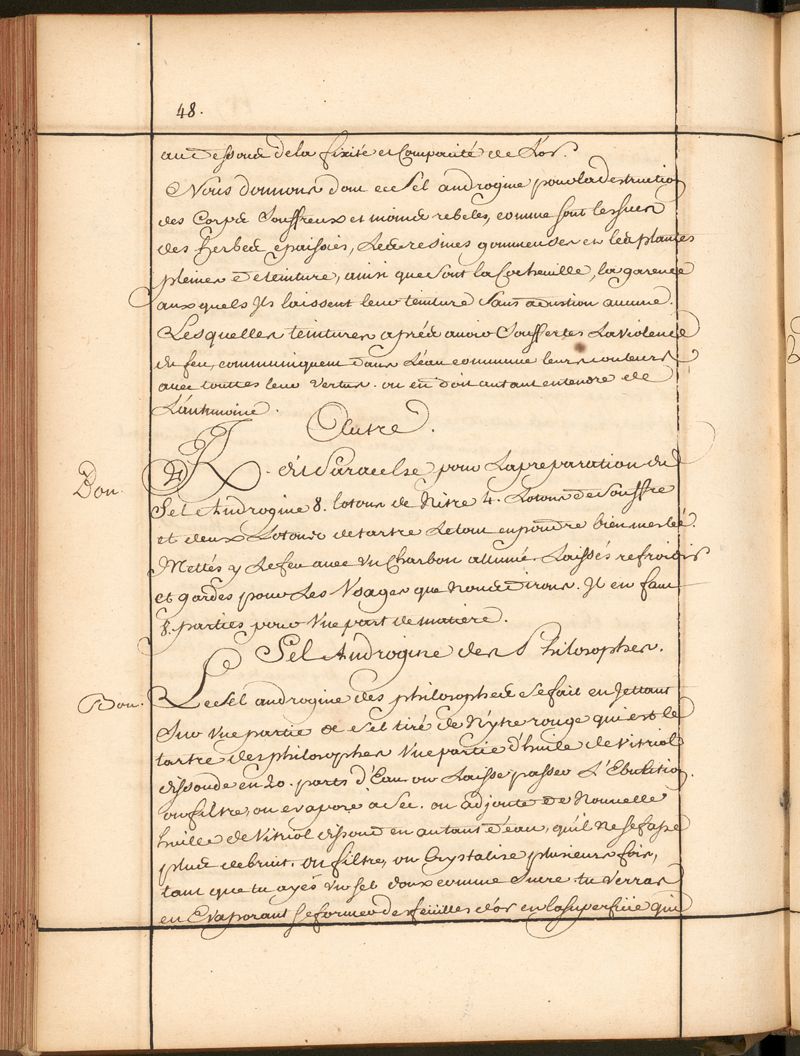 48.
au dessous de la fixité et Compacité de L'or.
Nous donnons donc ce Sel androgine pour la destruction
des Corps Souffreux et moins rebeles, comme sont les sucs
des herbes epaissies, Les resines gommeuses et les plantes
pleines de teinture, ainsi que sont la Cocheuille, la garence
auxquels Ils laissent leur teinture sans adustion aucune.
Lesquelles teintures aprés avoir Souffertes La violence
du feu, communiquent dans L'eau commune leurs couleurs
avec touttes leur vertus. on en doit autant entendre de
L'antimoine.
Autre.
R. dit Paracelse pour La preparation du
Don.
Sel Androgine 8. lotons de Nitre 4. Lotons de Souffre
et deux Lotons de tartre Le tout en poudre bien meslé.
Mettés y Le feu avec Un Charbon allumé. Laissés refroidir
et gardes pour Les Usages que Nous dirons. Il en faut
8. parties pour Une part de matiere.
Sel Androgine des Philosophes.
Bon.
Le Sel androgine des philosophes se fait en Jettant
Sur Une partie de Sel tiré de Nytre rouge qui est le
tartre des philosophes Une partie d'huile de Vitriol
dissoude en 20. parts d'Eau on Laisse passer L'Ebulition
on filtre, on evapore à Sec. on adjoute de Nouvelle
huille de Vitriol dissout en autant d'eau, qu'il ne se fasse
plus de bruit. on filtre, on Crystalise plusieurs fois,
tant que tu ayés Un sel doux comme Sucre tu Verras
en Evaporant se former des feüilles d'or en la superficie qui